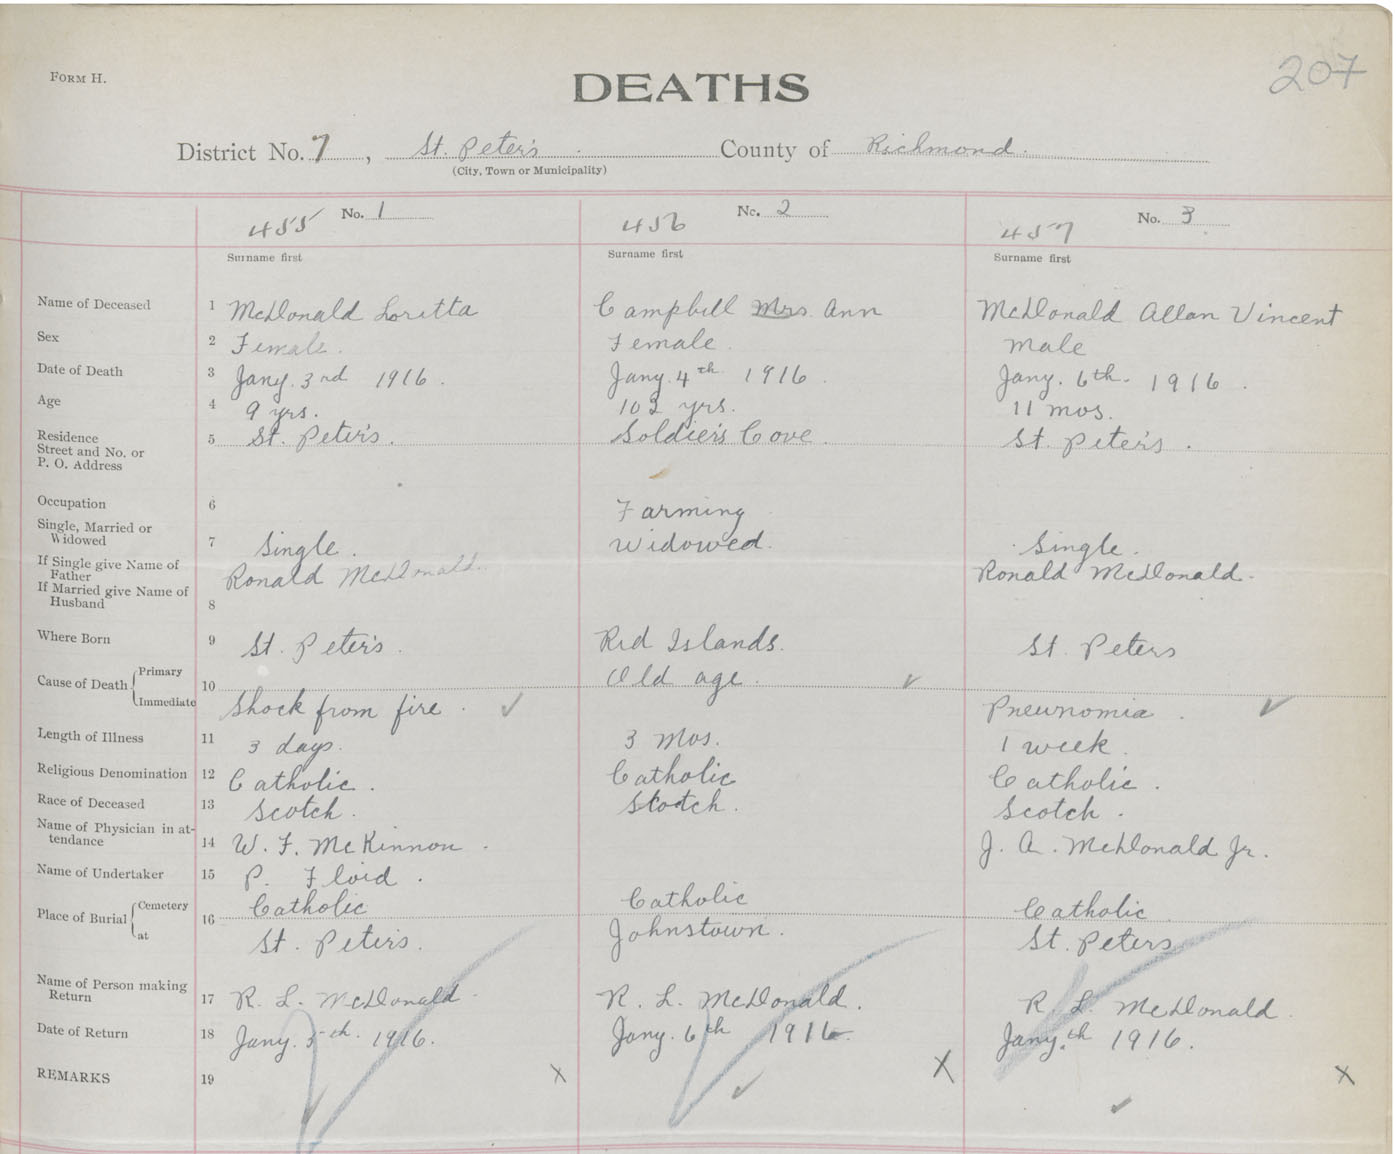 FORM H.
DEATHS
207
District No. 7, St. Peter's County of Richmond
(City, Town or Municipality)
No. 1 No. 2 No. 3
455 456 457
Surname first Surname first Surname first
Name of Deceased 1 McDonald Loretta Campbell Mrs. Ann McDonald Allan Vincent
Sex 2 Female. Female. male
Date of Death 3 Jany. 3rd 1916. Jany. 4th 1916. Jany. 6th. 1916.
Age 4 9 yrs. yrs. 11 mos.
Residence 5 St. Peter's. Soldier's Cove. St. Peter's.
Street and No. or
P. O. Address
Occupation 6 Farming
Single, Married or
Widowed 7 Single. Widowed. Single.
If Single give Name of
Father Ronald McDonald. Ronald McDonald.
If Married give Name of
Husband 8
Where Born 9 St. Peter's. Red Islands. St. Peters
Cause of Death Primary 10 Old age.
Immediate Shock from fire. Pneunomia.
Length of Illness 11 3 days. 3 mos. 1 week.
Religious Denomination 12 Catholic. Catholic Catholic.
Race of Deceased 13 Scotch. Scotch. Scotch.
Name of Physician in at-
tendance 14 W. F. McKinnon. J. A. McDonald Jr.
Name of Undertaker 15 P. Floid.
Place of Burial Cemetery 16 Catholic Catholic Catholic
at St. Peter's. Johnstown. St. Peters
Name of Person making
Return 17 R. L. McDonald R. L. McDonald. R. L. McDonald.
Date of Return 18 Jany. 5th. 1916. Jany. 6th 1916. Jany. th 1916.
REMARKS 19 X X X